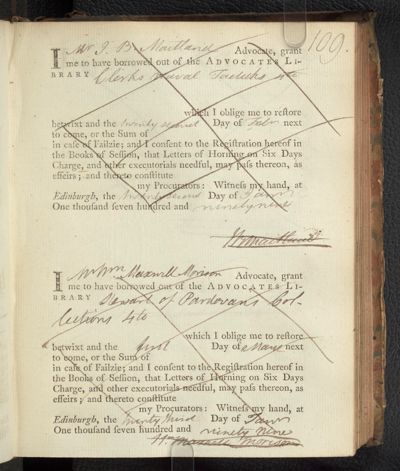 109.
I Mr J. B. Maitland Advocate, grant
me to have borrowed out of the ADVOCATES LI-
BRARY Clerks Naval Tacticks 4to
which I oblige me to reſtore
betwixt and the twenty second Day of Febr next
to come, or the Sum of
in caſe of Failzie; and I conſent to the Regiſtration hereof in
the Books of Seſſion, that Letters of Horning on Six Days
Charge, and other executorials needful, may paſs thereon, as
effeirs; and thereto conſtitute
my Procurators: Witneſs my hand, at
Edinburgh, the twenty second Day of Janr
One thouſand ſeven hundred and ninety nine
I Mr Wm Maxwell Morison Advocate, grant
me to have borrowed out of the ADVOCATES LI-
BRARY Stewart of Pardovans Col-
lections 4to
which I oblige me to reſtore
betwixt and the first Day of May next
to come, or the Sum of
in caſe of Failzie; and I conſent to the Regiſtration hereof in
the Books of Seſſion, that Letters of Horning on Six Days
Charge, and other executorials needful, may paſs thereon, as
effeirs; and thereto conſtitute
my Procurators: Witneſs my hand, at
Edinburgh, the twenty third Day of Janr
One thouſand ſeven hundred and ninety nine
Wm Maxwell Morison